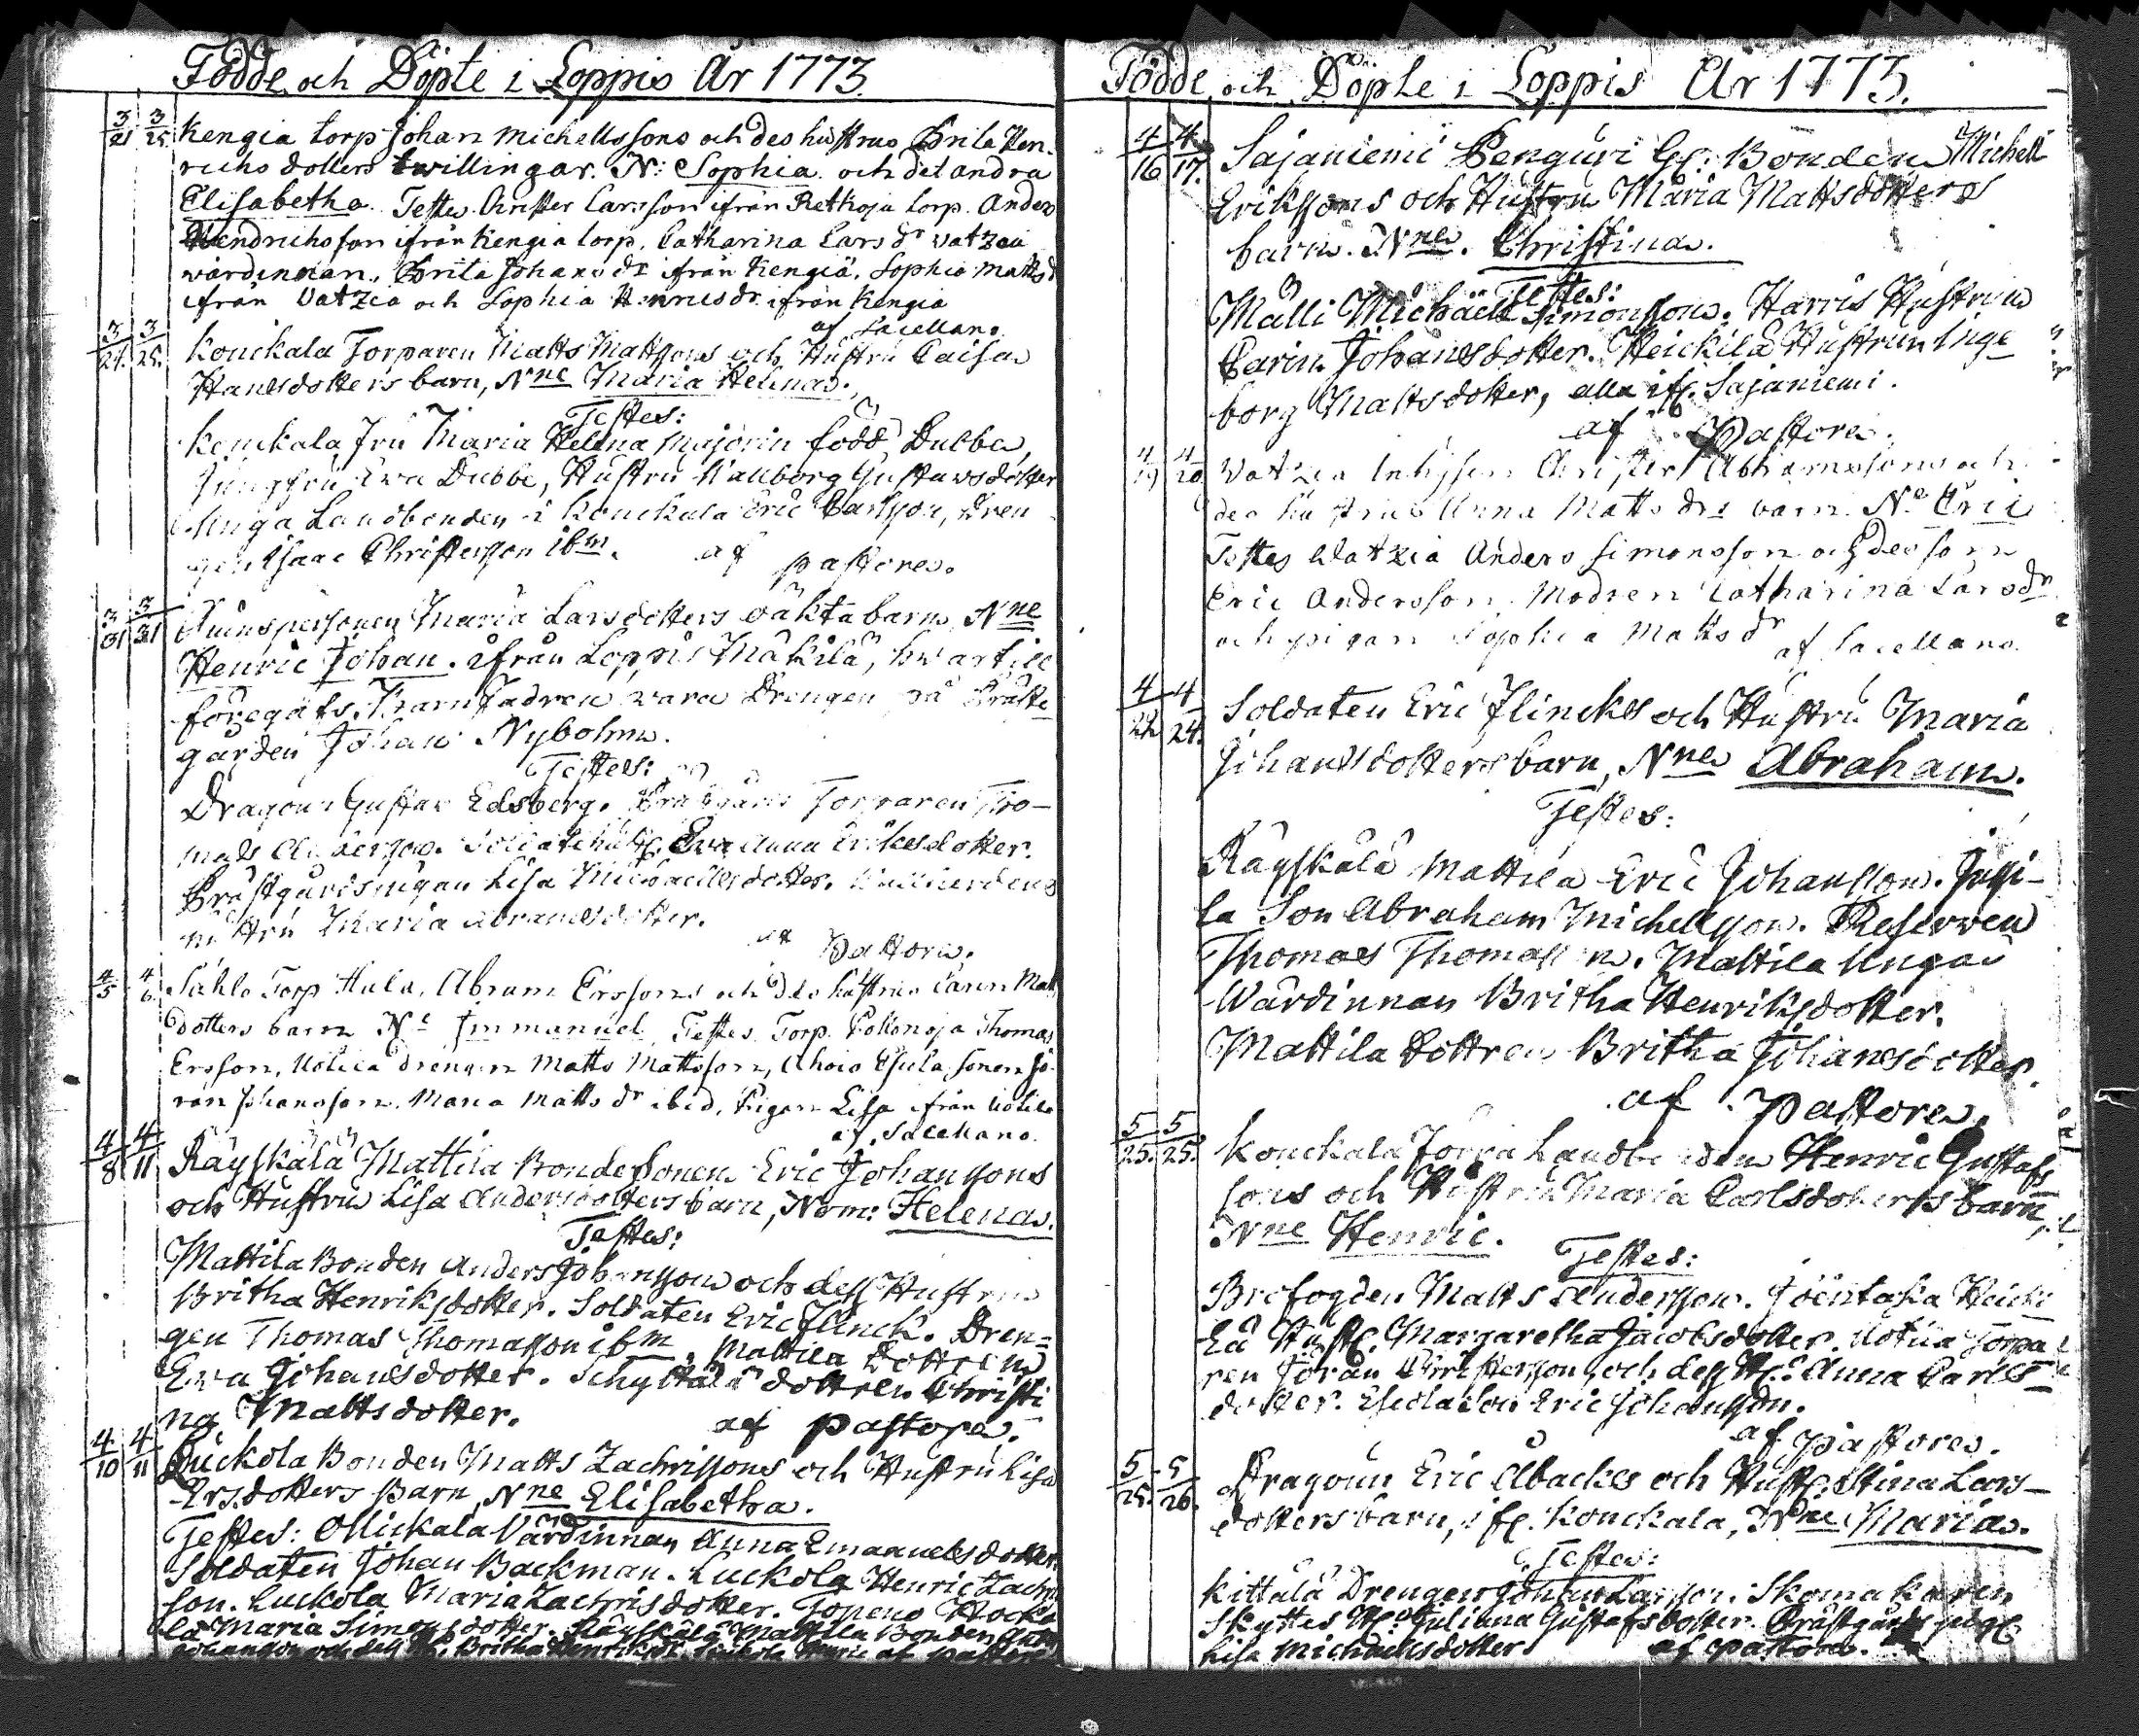 Födde och Döpte i Loppis År 1773.
3/21 3/25 Kengia torp Johan Michellssons och des hustrus Brita Hen
richs dotters twillingar. N: Sophia och det andra
Elisabetha. Testes Christer Larsson ifrån Rethoja torp. Anders
Hendrichsson ifrån Kengia torp, Catharina Lars dr Watzia
wärdinnan, Brita Johans dr ifrån Kengiä, Sophia Matts d
ifrån Vatzia och Sophia Henrics dr ifrån Kengia
af Sacellano.
3/21. 3/25. Konckala Torparen Matts Mattsons och Hustru Caisa
Hansdotters barn, Nne Maria Helena.
Testes:
Konckala Fru Maria Helena Majorin född Dubbe,
Jungfru Ewa Dubbe, Hustru Wallborg Gustawsdotter
Unga Landbonden i Konckala Eric Carlsson, Dren
gen Isaac Christersson ibm. af pastore.
3/31 3/31 Quinspersonen Maria Larsdotters oäkta barn, Nne
Henric Johan. ifrån Loppis Mäkilä, hwartill
föregafs Barnfadren wara Drengen på Präste
gården Johan Nyholm.
Testes:
Dragoun Gustav Edsberg. Torparen Tho-
mas Andersson. Ewa Anna Ericksdotter.
Prästgårdspigan Lisa Michaelsdotter.
Hustru Maria Abramsdotter.
af Pastore.
4/5 4/6 Sahlo Torp Hula, Abram Erssons och des hustrus Carin Matt
dotters barn Ne Immanuel Testes Torp. Pollonoja Thomas
Ersson, Uotila drengen Matts Mattsson, Ahois Esula sonen Jö
ran Johansson. Maria Matts dr ibid, Pigan Lisa ifrån Uotila
af Sacellano.
4/8 4/11 Räyskälä Mattila Bondesonen Eric Johanssons
och Hustru Lisa Andersdotters barn, Nom: Helena.
Testes:
Mattila Bonden Anders Johansson och dess Hustru
Britha Henriksdotter. Soldaten Eric Flinck. Dren=
gen Thomas Thomasson ibm. Mattila Dottren
Ewa Johansdotter. Schyttälä dottren Christi
na Mattsdotter. af pastore.
4/10 4/11 Luckola Bonden Matts Zachrissons och Hustru Lisa
Ersdotters Barn, Nne Elisabetha.
Testes: Ollickala Värdinnan Anna Emanuelsdotter.
Soldaten Johan Backman. Luckola Henric Zachris
son. Luckola Maria Zachrisdotter. Topeno Hocka
la Maria Simonsdotter. Räyskälä Mattila Bonden Anders
Johansson och dess H. Britha Henriksdr. af pastore
Födde och Döpte i Loppis År 1773.
4/16 4/17. Sajaniemi Penguri Gl: Bonden Michell
Erikssons och Hustru Maria Mattsdotters
barn. Nne. Christina.
Testes:
Mälli Michäel Simonsson. Harris Hustrun
Carin Johansdotter. Heickilä Hustrun Inge
borg Mattsdotter, alla ifr. Sajaniemi.
af Pastore.
4/19 4/20 Watzia Inhysen Christer Abrahamssons och
des hustrus Anna Matts drs barn Ne Eric
Testes Watzia Anders Simonsson och des son
Eric Andersson. Modren Catharina Lars dr
och pigan Sophia Matts dr af Sacellano.
4/22 4/24. Soldaten Eric Flinckes och Hustru Maria
Johansdotters barn, Nne Abraham.
Testes:
Räyskälä Mattila Eric Johansson. Jussi-
la Son Abraham Michelsson. Reserven
Thomas Thomasson. Mattila Unga
Wärdinnan Britha Henriksdotter.
Mattila Dottren Britha Johansdotter.
af Pastore.
5/25. 5/25. Konckala Torra Landbonden Henric Gustafs
sons och Hustru Maria Carlsdotters barn,
Nne Henric.
Testes:
Brofogden Matts Andersson. Joentaka Heicki
lä Hustr. Margaretha Jacobsdotter. Uotila Torpa
ren Jöran Christersson och dess H: Anna Carls
dotter. Eseola Son Eric Johansson.
af pastore.
5/25. 5/26. Dragoun Eric Abackes och Hustr. Stina Lars-
dotters barn, ifr. Konckala, Nne Maria.
Testes:
Kittälä Drengen Johan Larsson. Skomakaren
Skyttes H: Juliana Gustafsdotter. Prästgårds pig.
Lisa Michaelsdotter af pastore.